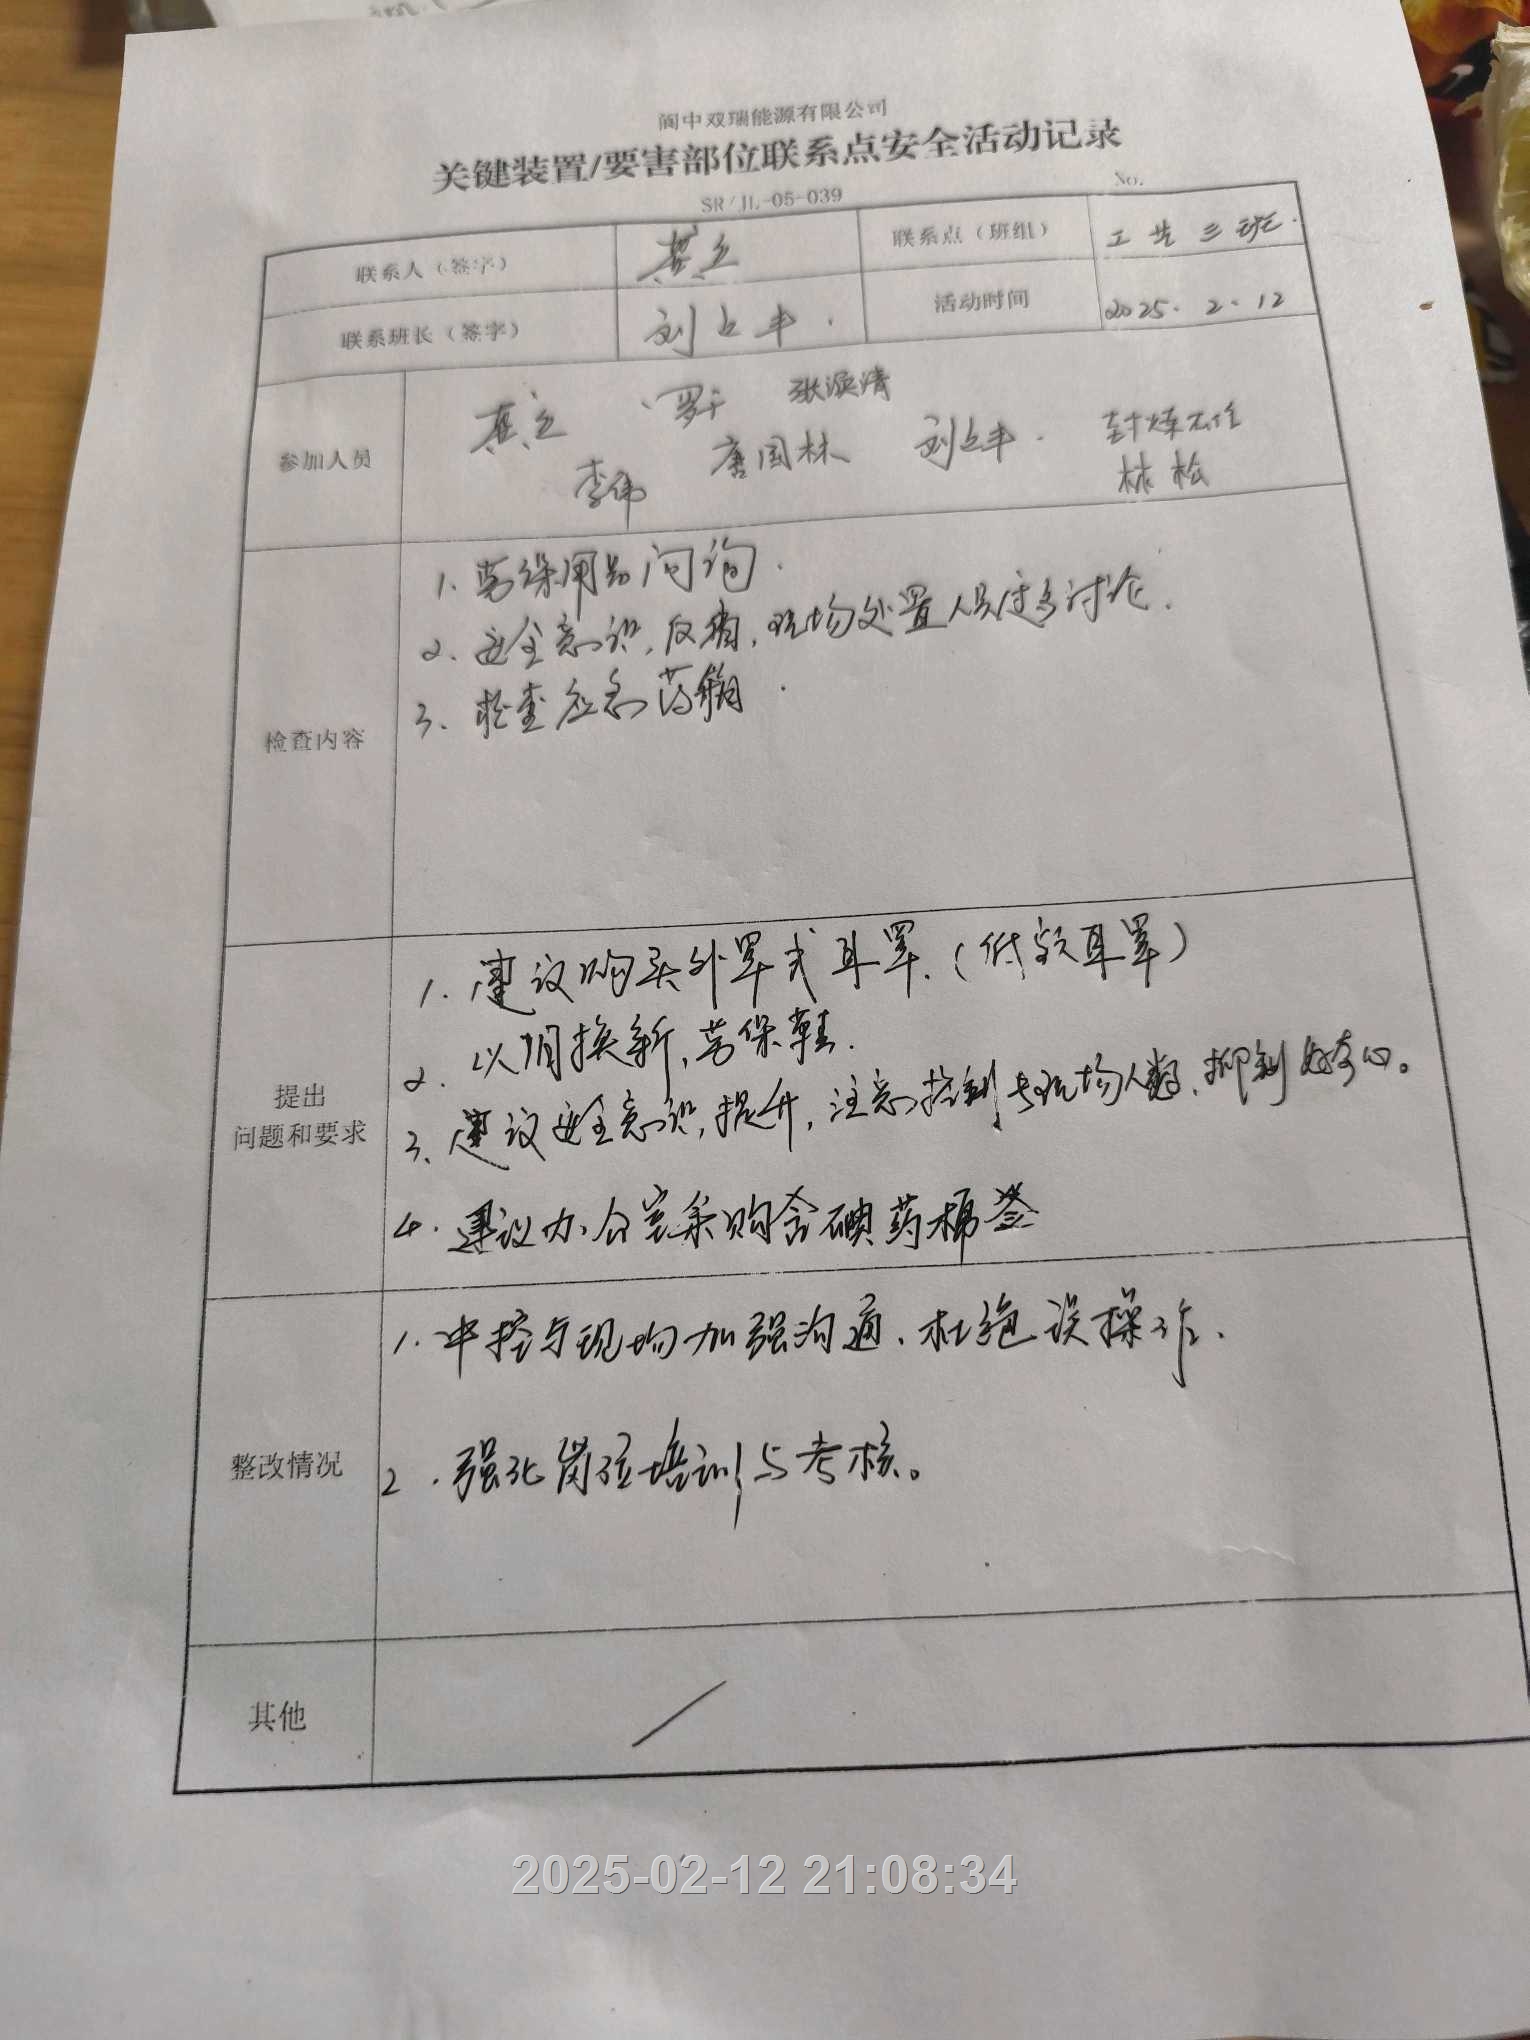 阆中双瑞能源有限公司
关键装置/要害部位联系点安全活动记录
SR/JL-05-039 No.
联系人（签字） 联系点（班组） 工艺三班.
联系班长（签字） 刘上丰. 活动时间 2025.2.12
参加人员
罗干 张涣清
李伟 唐国林 刘上丰. 林松
检查内容
1. 劳保用品问询.
2. 安全意识,反省,现场处置人员过多讨论.
3. 检查应急药箱.
提出
问题和要求
1. 建议购买外罩式耳罩.(低款耳罩)
2. 以旧换新,劳保鞋.
3、建议安全意识,提升,注意控制去现场人数,抑制好奇心。
4. 建议办公室采购含碘药棉签
整改情况
1. 中控与现场加强沟通、杜绝误操作.
2. 强化岗位培训与考核。
其他
/
2025-02-12 21:08:34